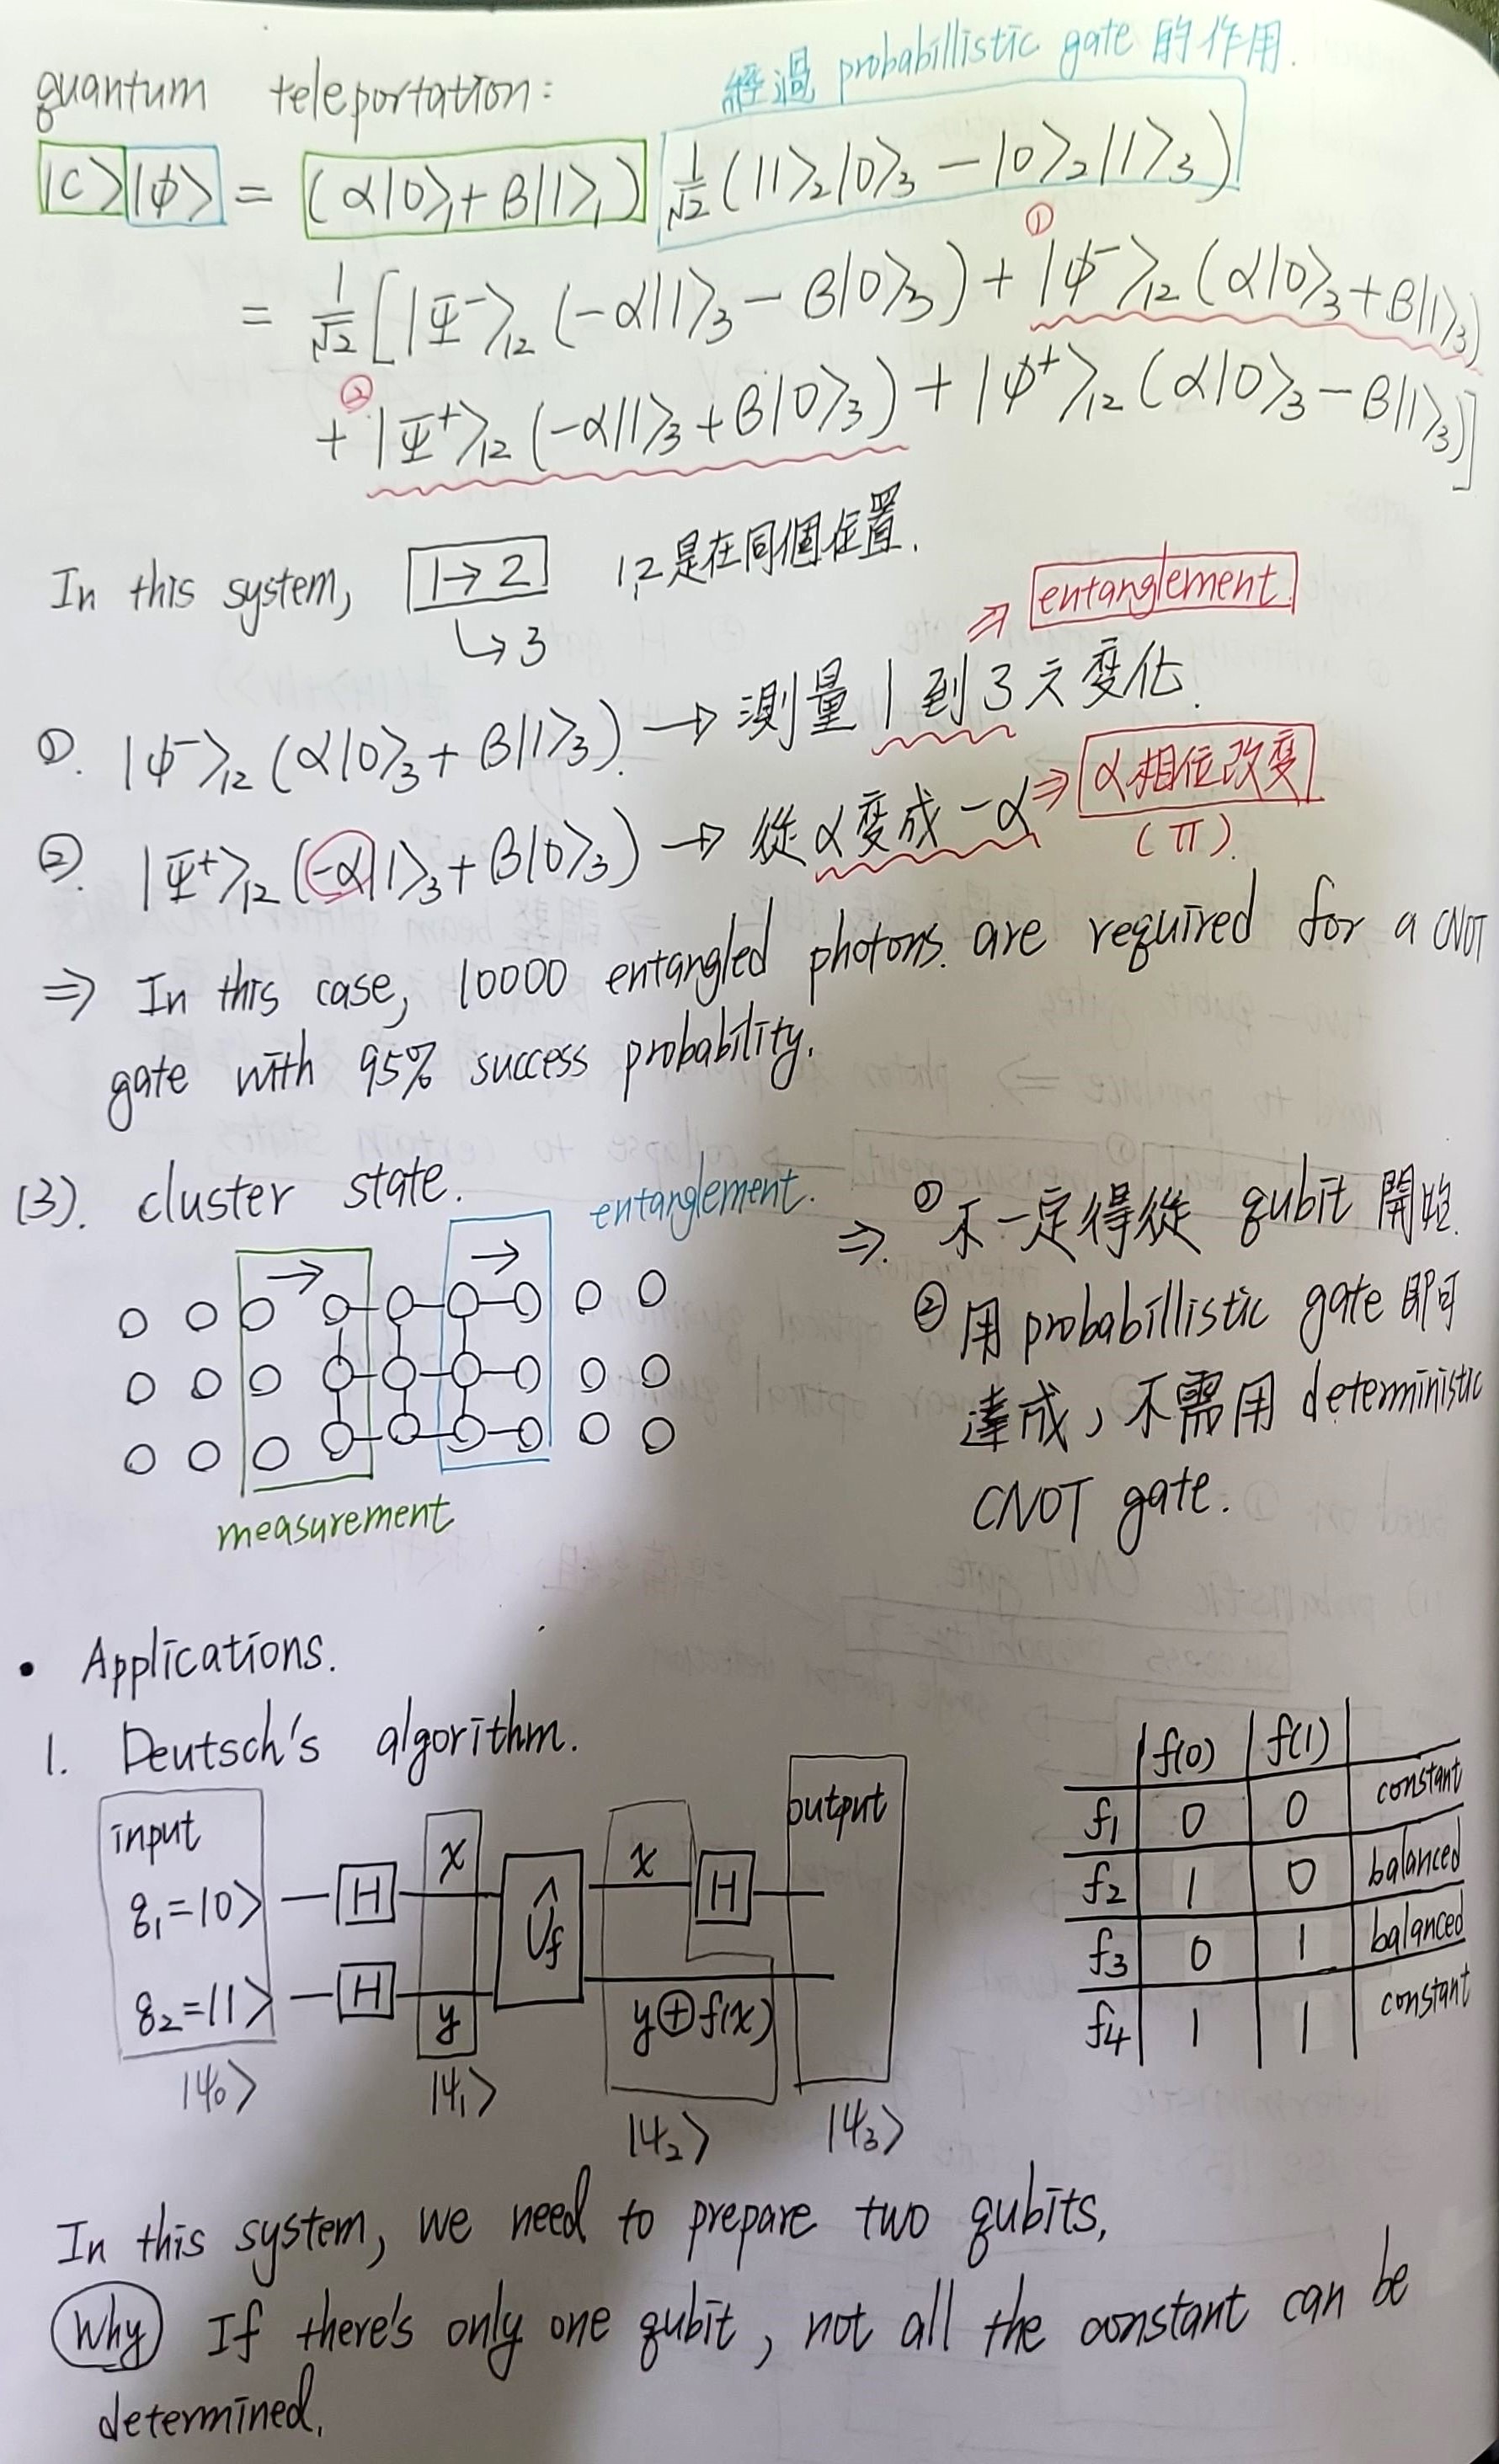 quantum teleportation:
經過 probabillistic gate 的作用.
|C>|ϕ> = (α|0>₁+β|1>₁) 1/√2 (|1>₂|0>₃ − |0>₂|1>₃)
= 1/√2 [|Ψ⁻>₁₂ (−α|1>₃ − β|0>₃) + ① |ϕ⁻>₁₂ (α|0>₃+β|1>₃)
+ ② |Ψ⁺>₁₂ (−α|1>₃+β|0>₃) + |ϕ⁺>₁₂ (α|0>₃ − β|1>₃)]
In this system, 1→2 1,2是在同個位置.
↳3
⇒ entanglement
①. |ϕ⁻>₁₂ (α|0>₃ + β|1>₃). → 測量1到3之變化.
②. |Ψ⁺>₁₂ (−α|1>₃+β|0>₃) → 從α變成−α ⇒ α相位改變
(π).
⇒ In this case, 10000 entangled photons. are required for a CNOT
gate with 95% success probability.
(3). cluster state.
entanglement.
measurement
⇒. ① 不一定得從 qubit 開始.
② 用 probabillistic gate 即可
達成, 不需用 deterministic
CNOT gate.
• Applications.
1. Deutsch's algorithm.
input
q₁=|0>
q₂=|1>
|ψ₀>
H
H
x
y
|ψ₁>
Û_f
x
H
y⊕f(x)
|ψ₂>
output
|ψ₃>
f(0) f(1)
f₁ 0 0 constant
f₂ 1 0 balanced
f₃ 0 1 balanced
f₄ 1 1 constant
In this system, we need to prepare two qubits,
Why If there's only one qubit, not all the constant can be
determined.